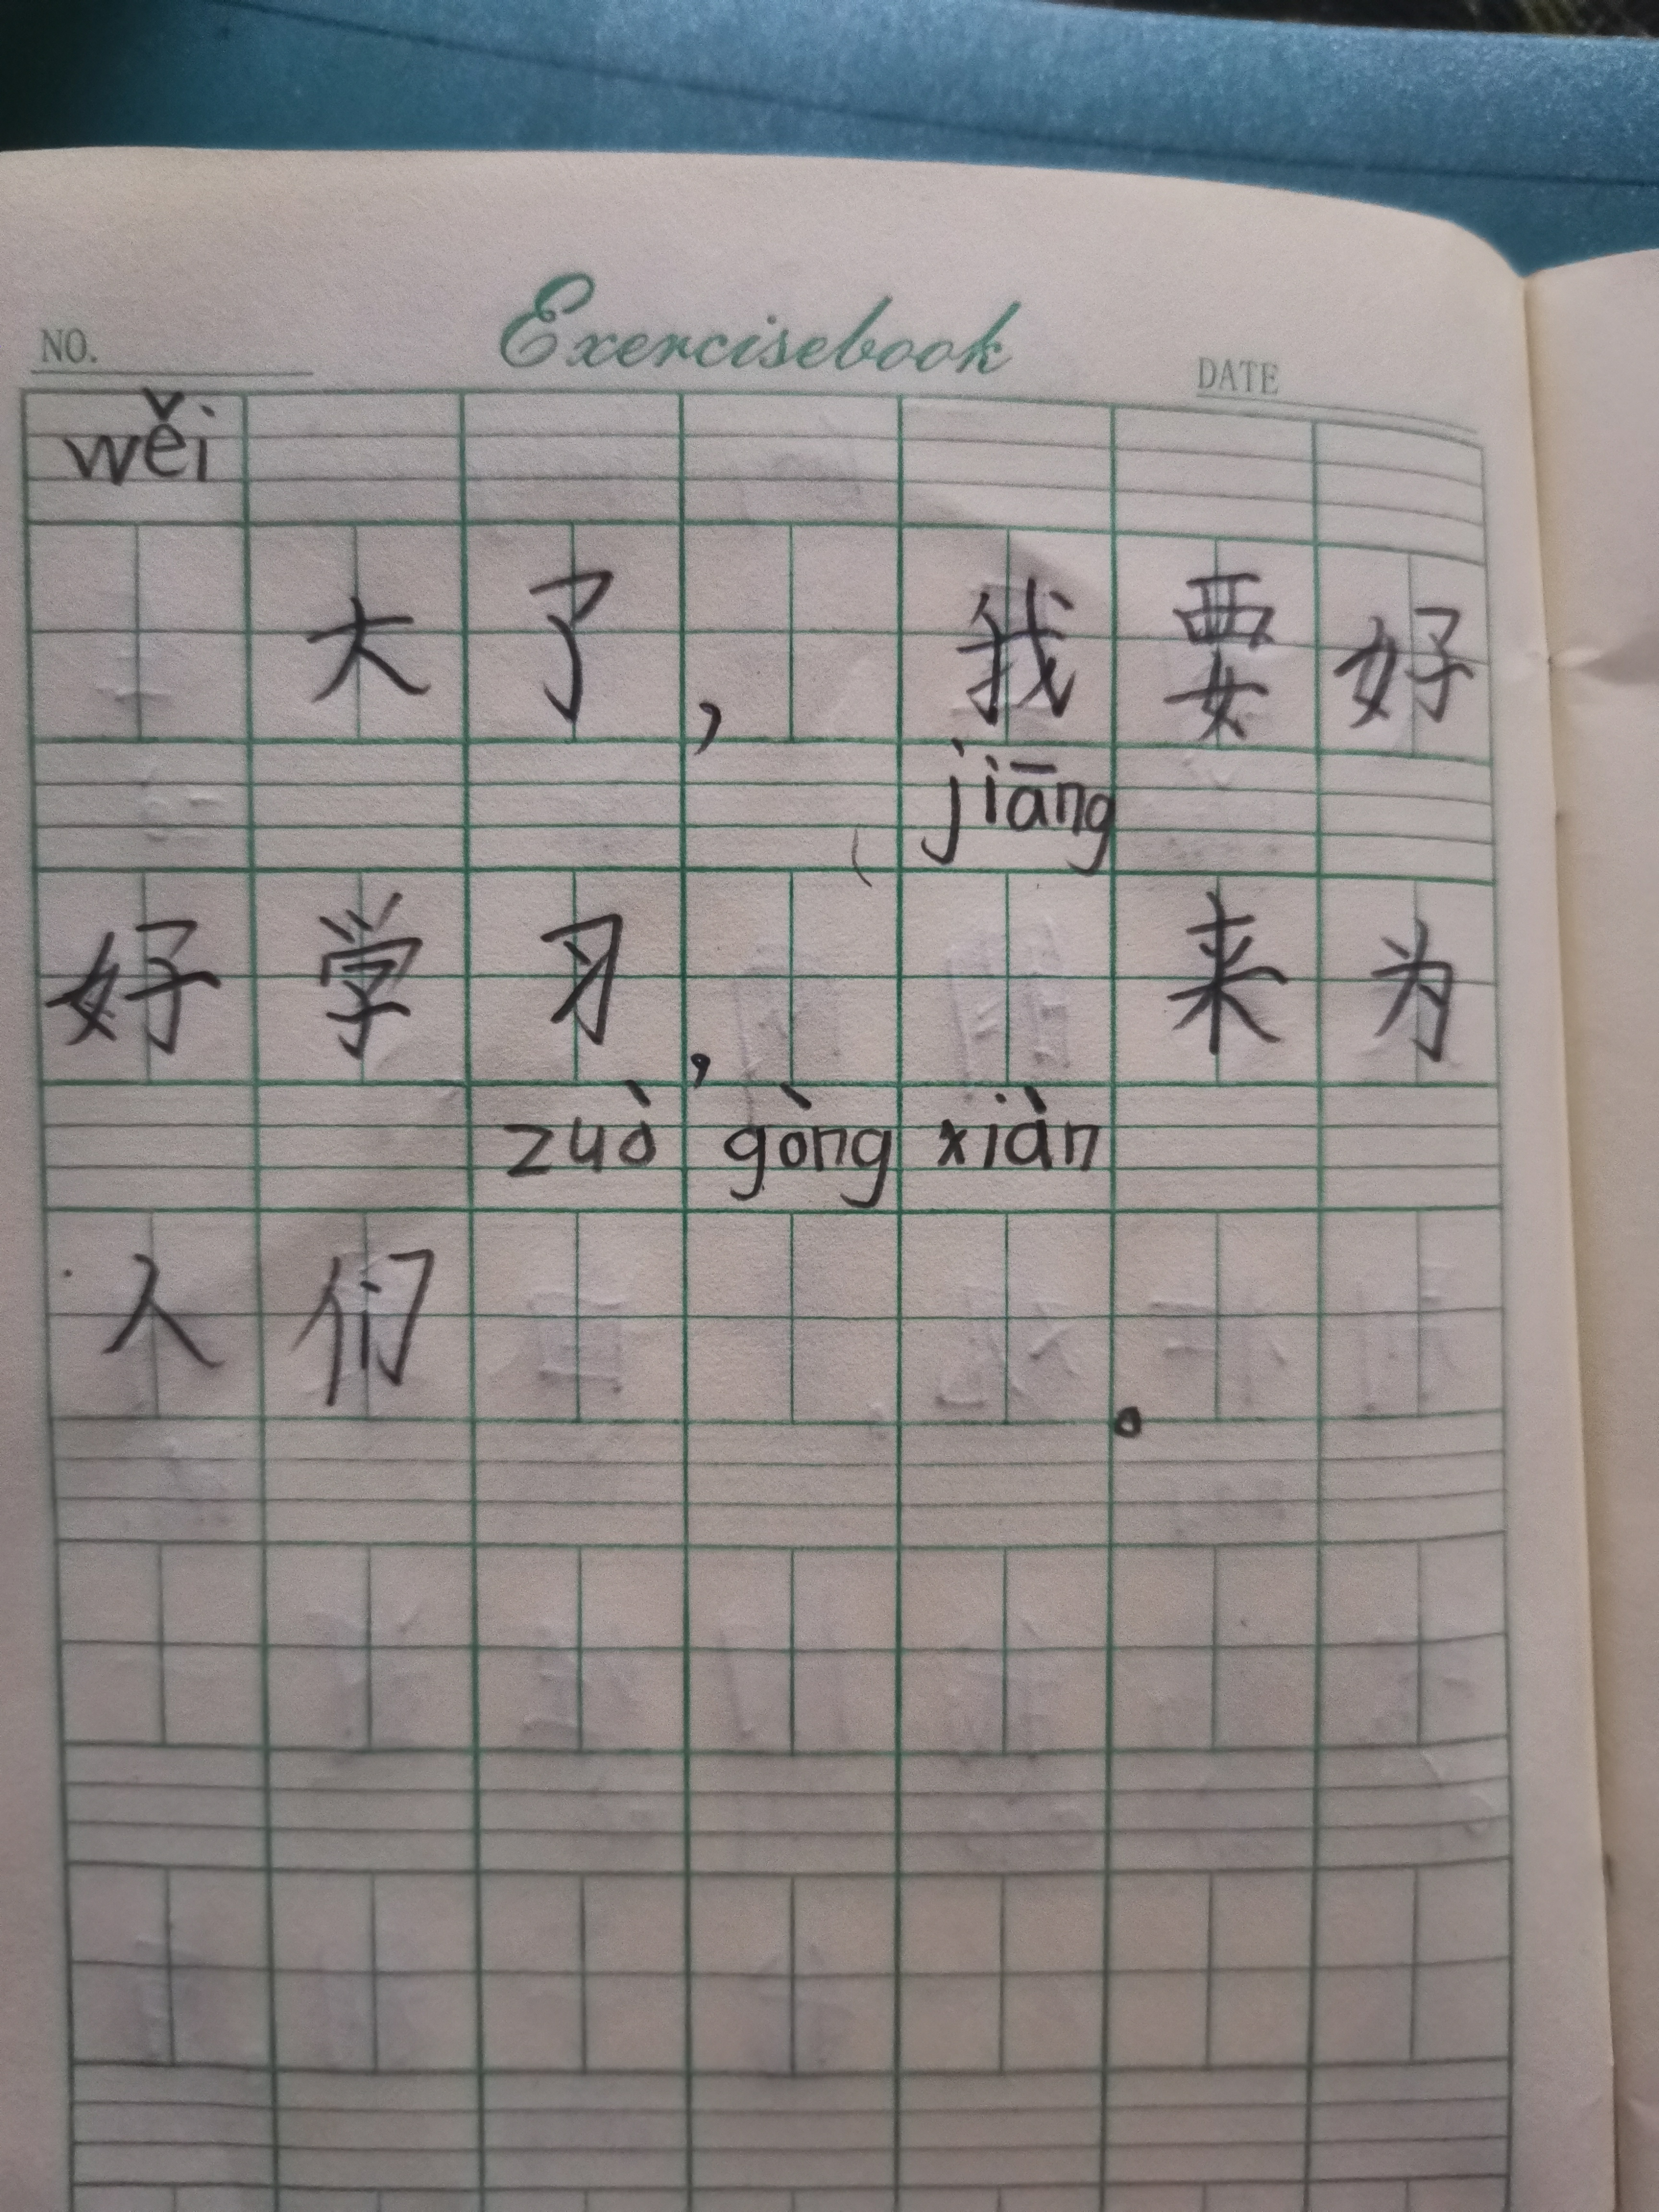 Exercisebook
NO.
DATE
wěi
大了，我要好
jiāng
好学习，来为
zuò gòng xiàn
人们。